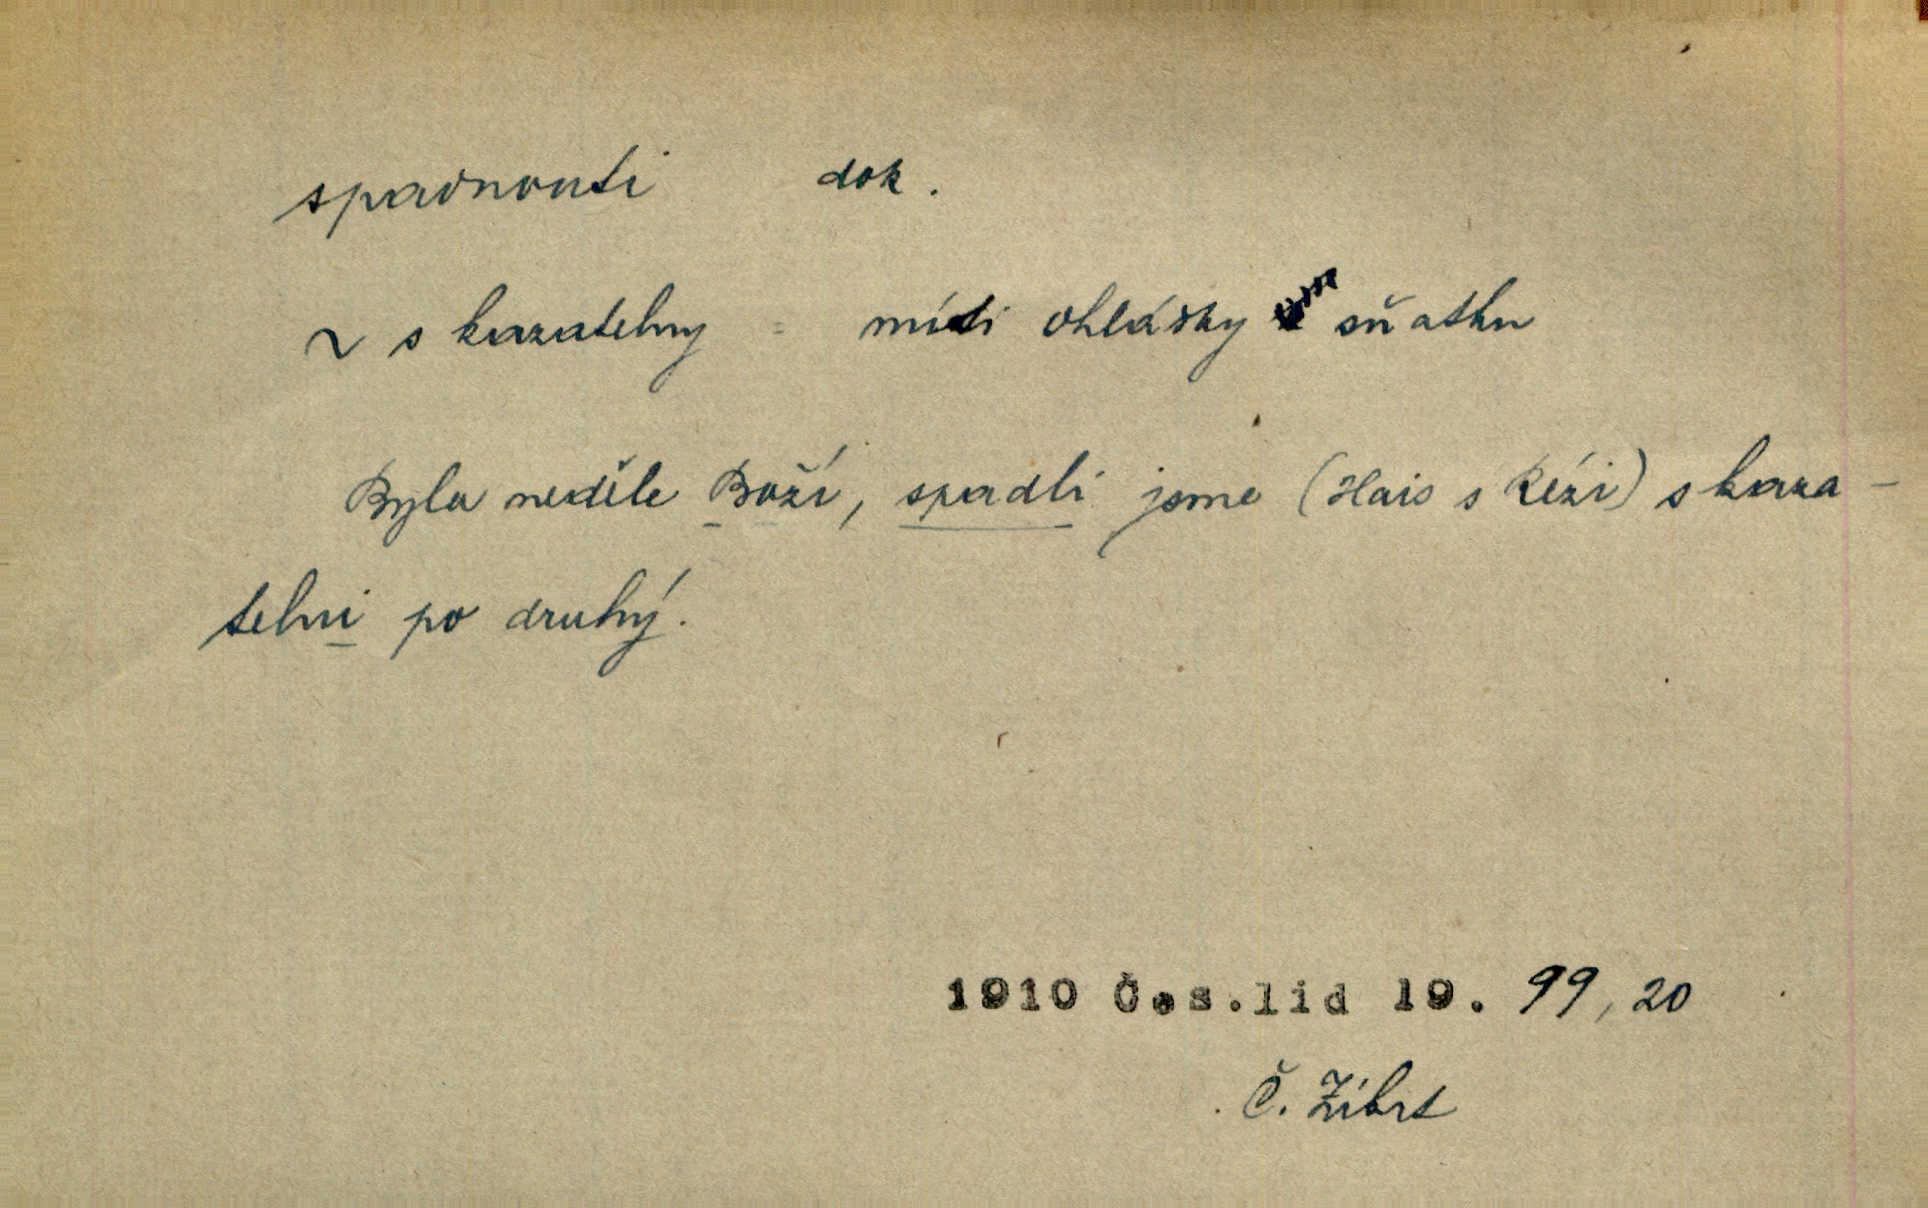 spadnouti dok.
~ s kazatelny = míti ohlášky sňatku
Byla neděle Boží, spadli jsme (Hais s Rézi) s kaza-
telni po druhý.
1910 Čes.lid 19. 99, 20
Č. Zíbrt